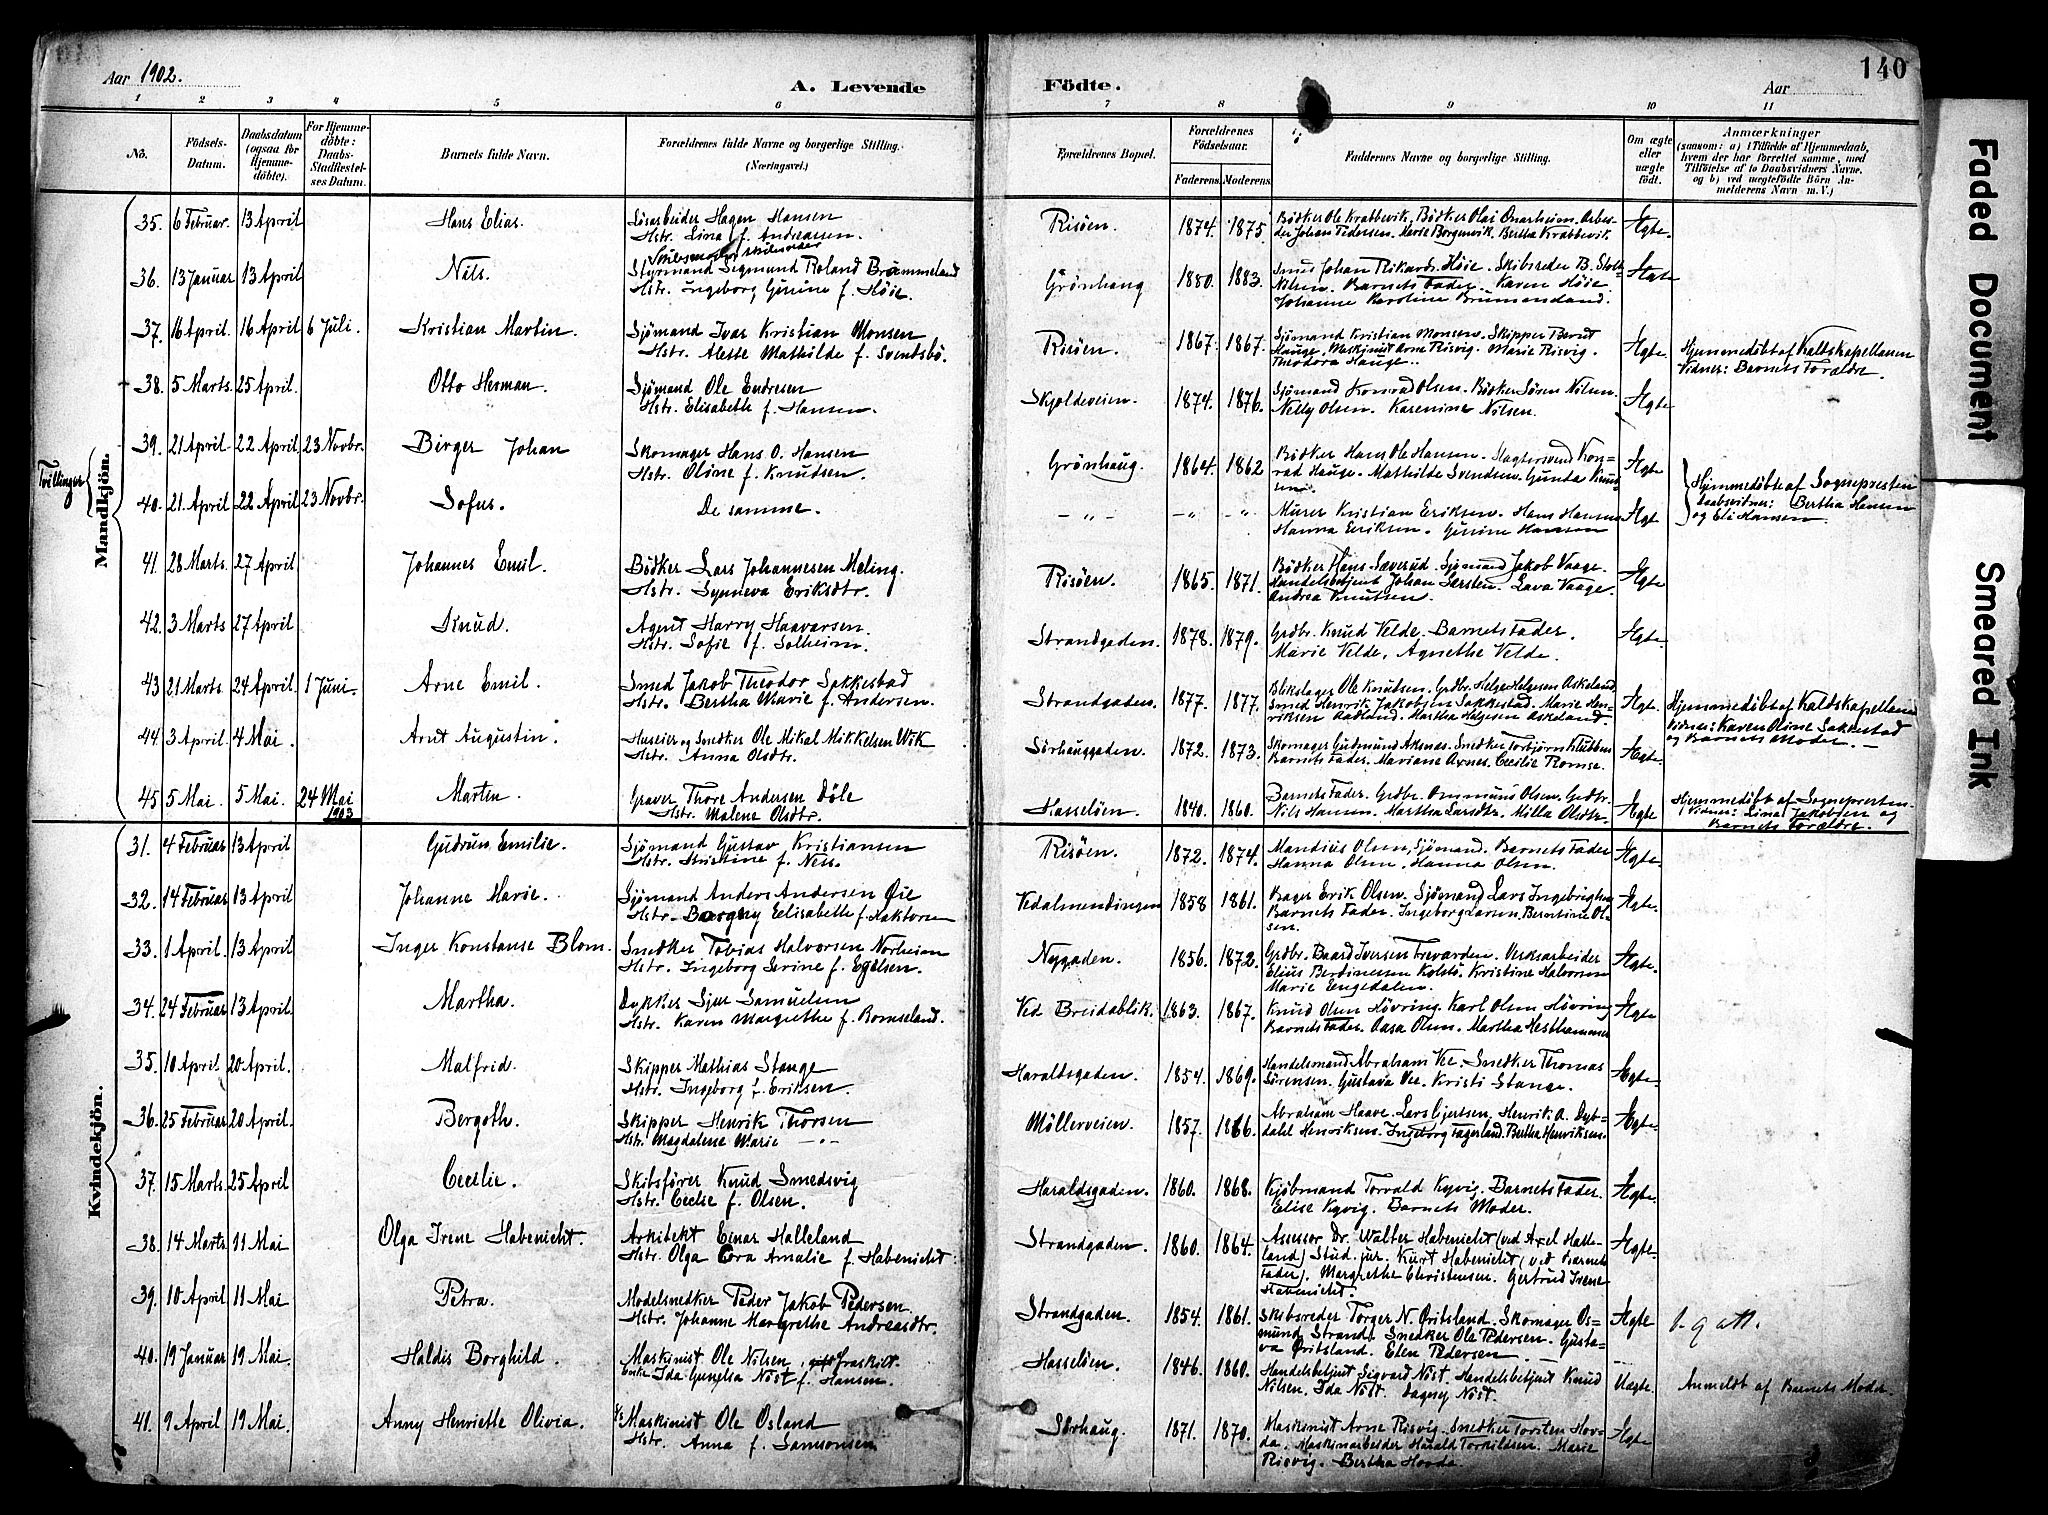 Aar 1902.
A. Levende Födte.
Aar
140
1 2 3 4 5 6 7 8 9 10 11
No.
Födsels-Datum.
Daabsdatum (ogsaa for Hjemmedöbte).
For Hjemmedöbte: Daabs-Stadfestelses Datum.
Barnets fulde Navn.
Forældrenes fulde Navne og borgerlige Stilling. (Næringsvei.)
Forældrenes Bopæl.
Forældrenes Födselsaar.
Faderens. Moderens.
Faddernes Navne og borgerlige Stilling.
Om ægte eller uægte födt.
Anmærkninger
(saasom: a) i Tilfælde af Hjemmedaab, hvem der har forrettet samme, med Tilföielse af to Daabsvidners Navne. og b) ved uægtefödte Börn Anmelderens Navn m. V.)
Mandkjön.
35. 6 Februar. 13 April Hans Elias. Løsarbeider Hagen Hansen
Hstr. Lina f. Andreassen.
Risöen. 1874. 1875 Bødker Ole Krabbevik, Bødker Olai Onarheim. Arbei-
der Johan Pedersen. Marie Borgenvik. Bertha Krabbevik. Ægte.
36. 13 Januar 13 April Nils. Styrmand Sigmund Roland Brummeland
Hstr. Ingeborg Gurine f. Høie.
Grönhaug 1880. 1883. Smed Johan Rikards. Høie. Skibsreder B. Stolt-
Nilsen. Barnets Fader. Karen Höie.
Johanne Karoline Brummeland. Ægte
37. 16 April. 16 April 6 Juli. Kristian Martin. Sjömand Ivar Kristian Monsen
Hstr. Alette Mathilde f. Svendsbö.
Risöen. 1867. 1867. Sjömand Kristian Monsen. Skipper Berndt
Hauge. Maskinist Arne Risvig. Marie Risvig.
Theodora Hauge. Ægte. Hjemmedöbt af Kaldskapellanen
Vidner: Barnets Forældre.
38. 5 Marts. 25 April. Otto Herman. Sjömand Ole Endresen
Hstr. Elisabeth f. Hansen.
Skjoldeveien. 1874. 1876. Sjömand Konrad Olsen. Bödker Sören Nilsen.
Nelly Olsen. Karenine Nilsen. Ægte
Tvillinger
39. 21 April. 22 April. 23 Novbr. Birger Johan Skomager Hans O. Hansen
Hstr. Oline f. Knudsen.
Grönhaug. 1864. 1862 Bödker Hans Ole Hansen. Slagtersvend Kon-
rad Hauge. Mathilde Svendsen. Gunda Knud-
sen. Ægte
Hjemmedöbte af Sognepresten
Daabsvidner: Bertha Hansen
og Eli Hansen.
40. 21 April 22 April 23 Novbr. Sofus. De samme.
- „ - - „ - „ Murer Kristian Eriksen. Hans Hansen
Hanna Eriksen. Gurine Hansen Ægte
41. 28 Marts. 27 April Johannes Emil. Bödker Lars Johannesen Meling.
Hstr. Synneva Eriksdtr.
Risöen. 1865. 1871. Bödker Hans Sæverud. Sjömand Jakob Vaage.
Handelsbetjent Johan Sersten. Lava Vaage.
Andrea Knutsen. Ægte
42. 3 Marts 27 April Knud. Agent Harry Haavarsen.
Hstr. Sofie f. Solheim.
Strandgaden. 1878. 1879. Grdbr. Knud Velde. Barnets Fader.
Marie Velde. Agnethe Velde. Ægte.
43 21 Marts. 24 April. 1 Juni. Arne Emil. Smed Jakob Theodor Sakkestad
Hstr. Bertha Marie f. Andersen.
Strandgaden. 1877. 1877. Blikslager Ole Knutsen. Grdbr. Helge Helgesen Askeland.
Smed Henrik Jakobsen Sakkestad. Marie Hen-
riksen Aadland. Martha Helgesen Askeland. Ægte.
Hjemmedöbt af Kaldskapellanen
Vidner: Karen Oline Sakkestad
og Barnets Moder. —
44. 3 April. 4 Mai. Arnt Augustin. Huseier og Snedker Ole Mikal Mikkelsen Wik
Hstr. Anna Olsdtr.
Sörhauggaden. 1872. 1873. Skomager Gudmund Aksnæs. Snedker Torbjörn Klubben
Barnets Fader. Mariane Axnes. Cecilie Romse. Ægte.
45 5 Mai. 5 Mai. 24 Mai 1903 Marten. Graver Thore Andersen Döle
Hstr. Malene Olsdtr.
Hasselöen. 1840. 1860. Barnets Fader. Grdbr. Ommund Olsen. Grdbr.
Nils Hansen. Martha Larsdtr. Milla Olsdtr. Ægte
Hjemmedöbt af Sognepresten.
Vidner: Lina Jakobsen og
Barnets Forældre.
Kvindekjön.
31. 4 Februar 13 April Gudrun Emilie. Sjömand Gustav Kristiansen
Hstr. Kristine f. Ness.
Risöen. 1872. 1874. Mandius Olsen, Sjömand. Barnets Fader
Hanna Olsen. Hanna Olsen. Ægte.
32. 14 Februar 13 April Johanne Marie. Sjömand Anders Andersen Öie
Hstr. Borgny Elisabeth f. Haktorsen
Vedalmendingen 1858 1861. Bager Erik Olsen. Sjömand Lars Ingebrigtsen
Barnets Fader. Ingeborg Larsen. Berntine Ol-
sen. Ægte.
33. 1 April. 13 April Inger Konstanse Blom. Snedker Tobias Halvorsen Norheim
Hstr. Ingeborg Serine f. Egelsen.
Nygaden. 1856. 1872. Grdbr. Baard Iversen Frevarden. Verksarbeider
Elius Berdinesen Kolstö. Kristine Halvorsen
Marie Engedalen. Ægte.
34. 24 Februar 13 April Martha. Dykker Sjur Samuelsen
Hstr. Karen Margrethe f. Romseland.
Ved Breidablik. 1863. 1867. Knud Olsen Hövring. Karl Olsen Hövring
Barnets Fader. Aasa Olsen. Martha Hesthammer Ægte
35. 10 April 20 April. Malfrid. Skipper Mathias Stange
Hstr. Ingeborg f. Eriksen.
Haraldsgaden. 1854. 1869. Handelsmand Abraham Vee. Snedker Thomas
Sörensen. Gustava Vee. Kristi Stange. Ægte.
36. 25 Februar 20 April Bergoth. Skipper Henrik Thorsen
Hstr. Magdalene Marie - „ -
Möllerveien. 1857. 1866. Abraham Haave. Lars Gjertsen. Henrik A. Dyb-
dahl Henriksen. Ingeborg Fagerland. Bertha Henriksen. Ægte.
37. 15 Marts. 25 April Cecilie. Skibsförer Knud Smedsvig
Hstr. Cecilie f. Olsen.
Haraldsgaden. 1860. 1868. Kjöbmand Torvald Kyvig. Barnets Fader.
Elise Kyvig. Barnets Moder. Ægte.
38. 14 Marts 11 Mai Olga Irene Habenicht. Arkitekt Einar Halleland
Hstr. Olga Cora Amalie f. Habenicht.
Strandgaden. 1860. 1864. Assessor Dr. Walter Habenicht (ved Axel Halle-
land) Stud. jur. Kurt Habenicht (ved Barnets
Fader). Margrethe Christensen. Gertrud Irene
Habenicht. Ægte.
39. 10 April 11 Mai Petra. Modelsnedker Peder Jakob Pedersen.
Hstr. Johanne Margrethe Andreasdtr.
Strandgaden. 1854. 1861. Skibsreder Torger N. Öritsland. Skomager Os-
mund Strand. Snedker Ole Pedersen. Gusta-
va Öritsland. Elen Pedersen. Ægte
40. 19 Januar 19 Mai. Haldis Borghild. Maskinist Ole Nilsen, fraskilt.
Enke Ida Gunelia Nist f. Hansen.
Hasselöen. 1846. 1860. Handelsbetjent Sigvard Nist. Handelsbetjent Knud
Nilsen. Ida Nist. Dagny Nist. Uægte. Anmeldt af Barnets Moder
41. 9 April 19 Mai. Anny Henriette Olivia. Maskinist Ole Osland
Hstr. Anna f. Samsonsen.
Sörhaug. 1871. 1870. Maskinist Arne Risvig. Snedker Torsten Hov-
da. Maskinarbeider Harald Torkildsen. Marie
Risvig. Bertha Hovda. Ægte
Faded Document
Smeared Ink